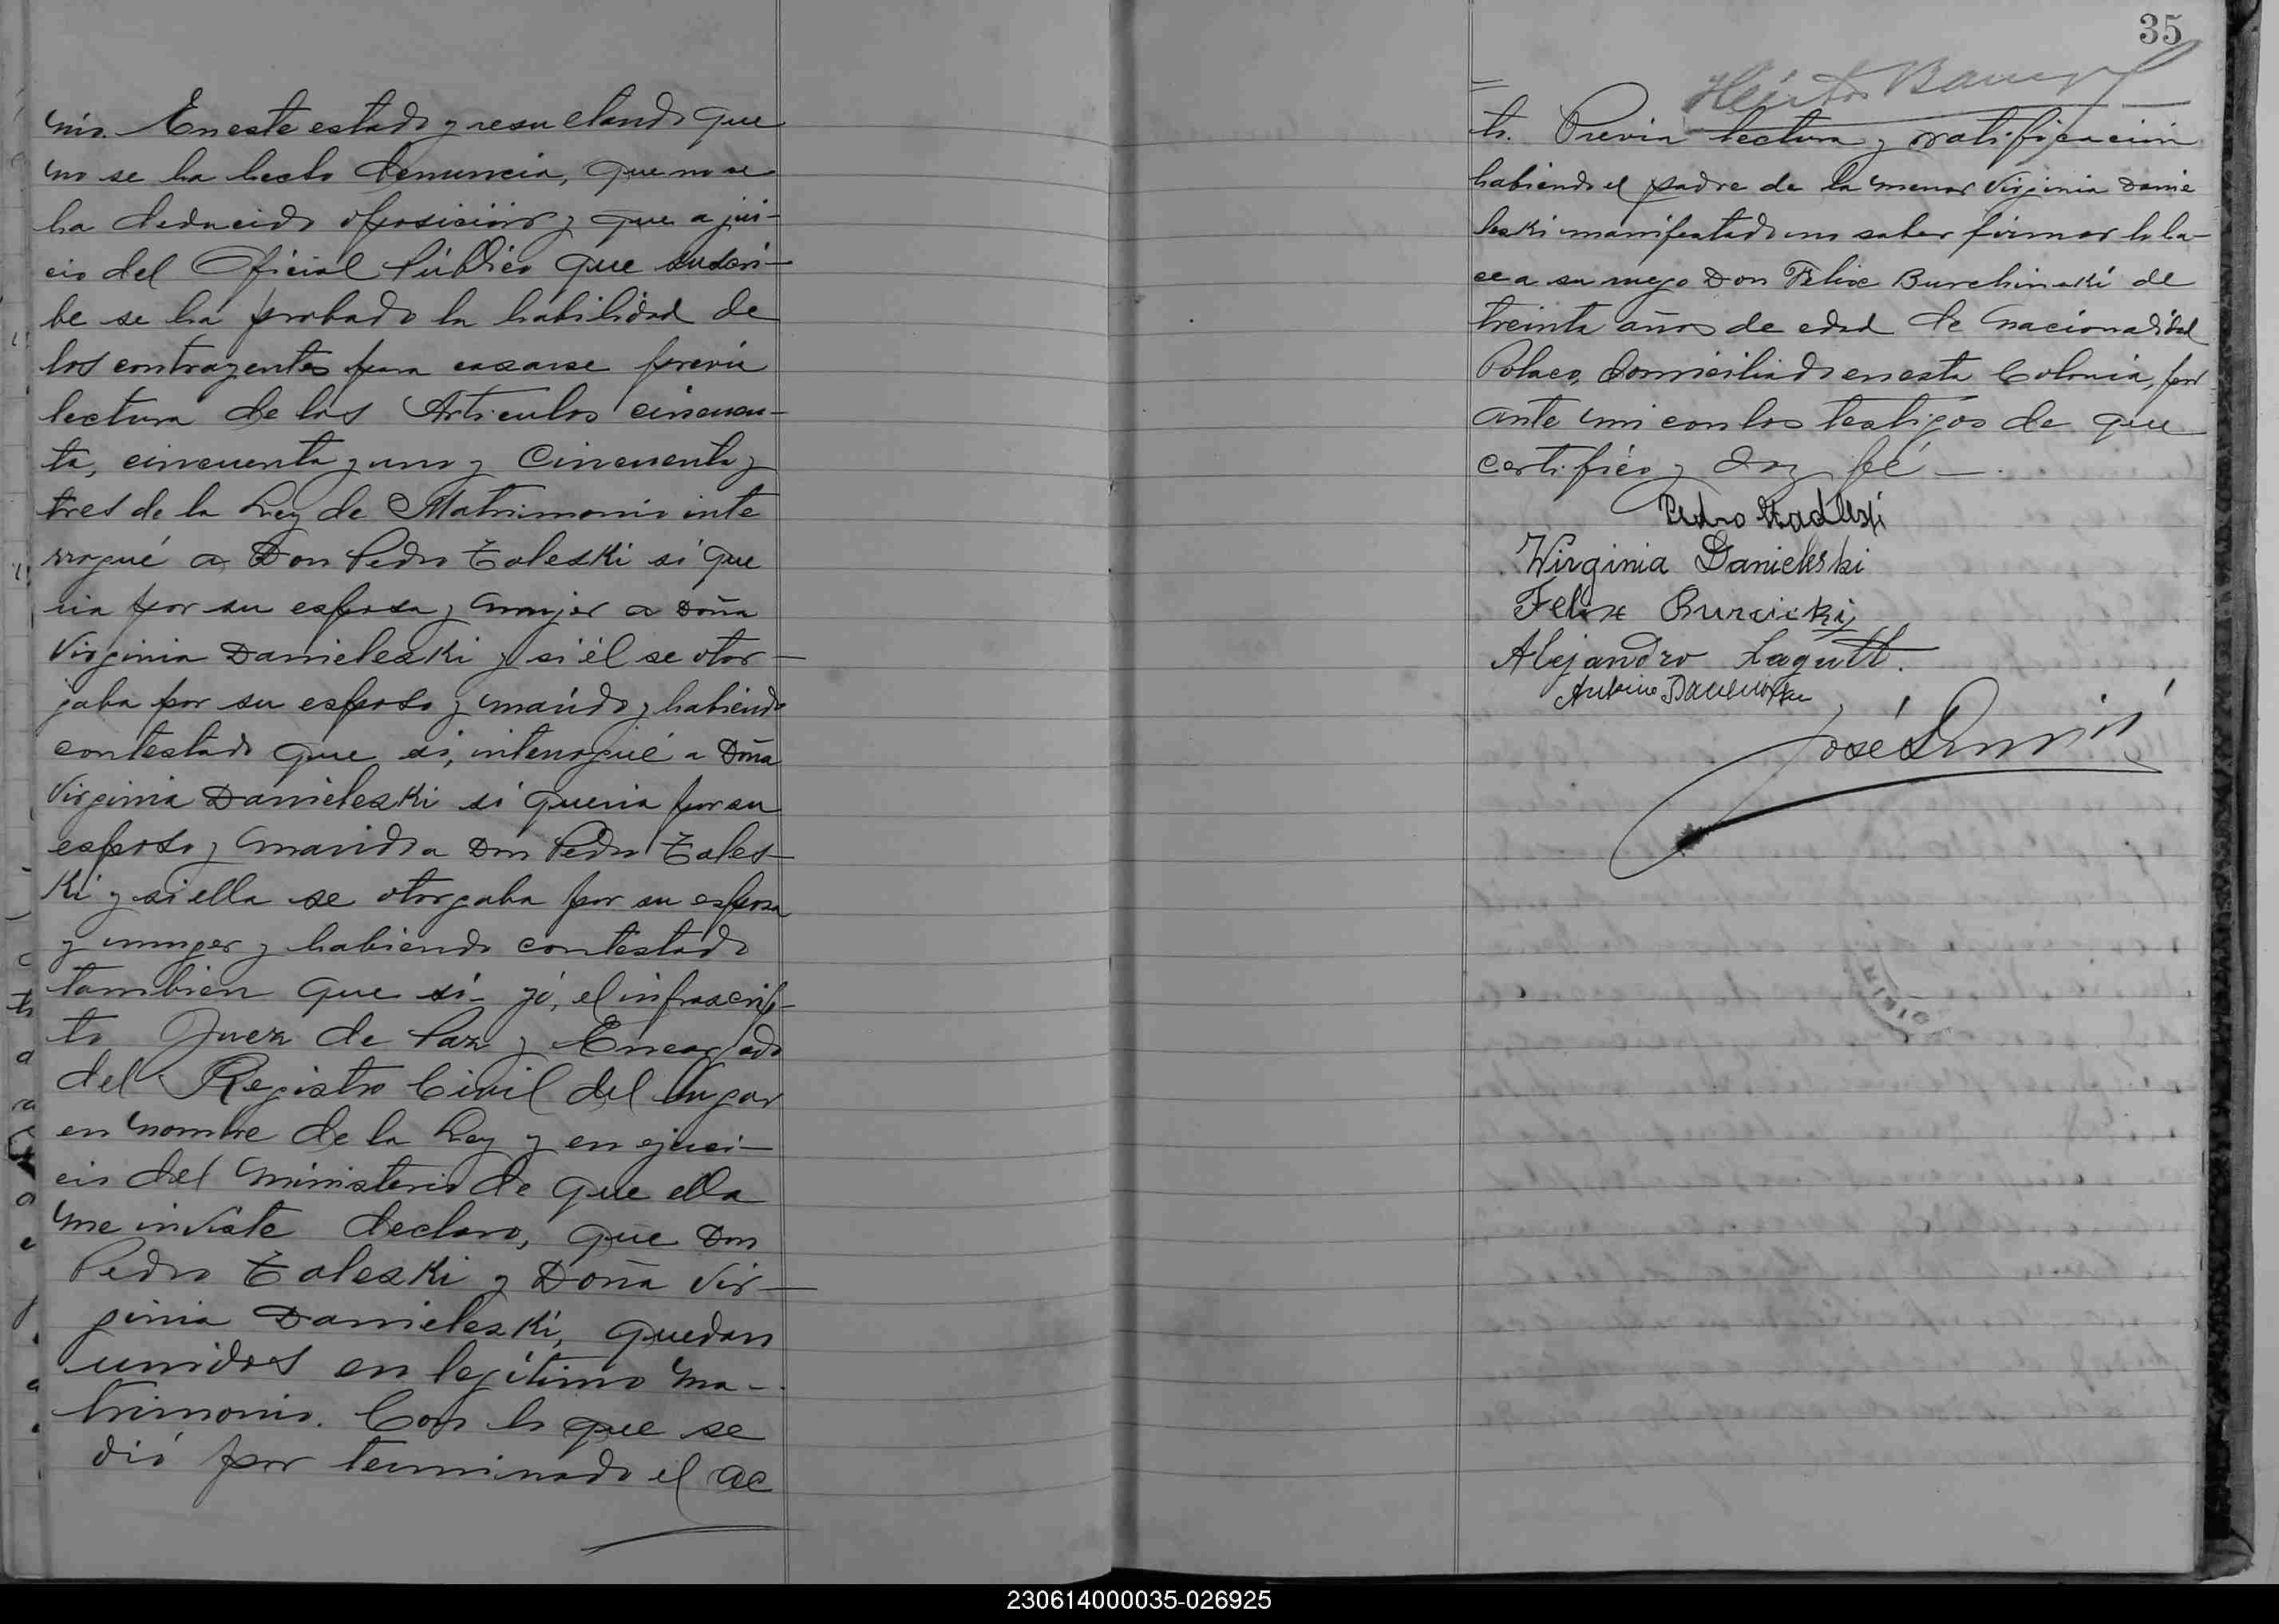 nio. En este estado y resueltando que
no se ha hecho denuncia, que no se
ha deducido oposición y que a jui-
cio del Oficial Público que suscri-
be se ha probado la habilidad de
los contrayentes para casarse previa
lectura de los Artículos cincuen-
ta, cincuenta y uno y Cincuenta y
tres de la Ley de Matrimonio inte
rrogué a Don Pedro Zaleski si que
ria por su esposa y mujer a Doña
Virginia Danieleski y si él se otor-
gaba por su esposo y marido y habiendo
contestado que si, interrogué a Doña
Virginia Danieleski si queria por su
esposo y marido a Don Pedro Zales-
ki y si ella se otorgaba por su esposa
y muger y habiendo contestado
tambien que si- yó, el infrascrip-
to Juez de Paz y Encargado
del Registro Civil del lugar
en nombre de la Ley y en ejerci-
cio del ministerio de que ella
me inviste declaro, que Don
Pedro Zaleski y Doña Vir-
ginia Danieleski, quedan
unidos en legítimo ma-
trimonio. Con lo que se
dió por terminado el ac
35
Héctor
to. Previa lectura y ratificación
habiendo el padre de la menor Virginia Danie
leski manifestado no saber firmar lo ha-
ce a su ruego Don Felix Burchinski de
treinta años de edad de nacionalidad
Polaco, domiciliado en esta Colonia, por
ante mi con los testigos de que
certifico y doy fé —.
Pedro
Virginia Danieleski
Felix Burzicki
Alejandro Lagutt.
José
230614000035-026925